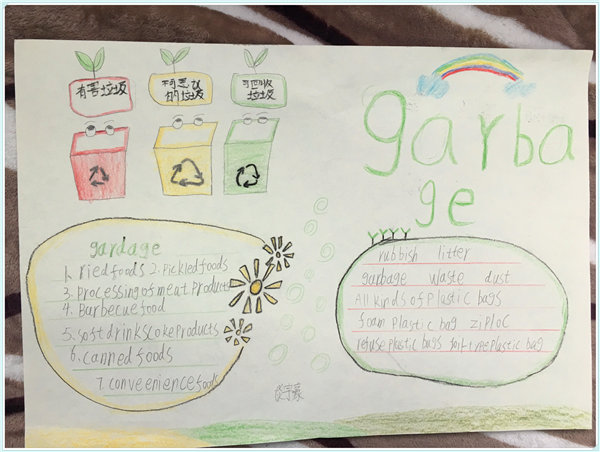 有害垃圾
不可回收
的垃圾
可回收
垃圾
garba
ge
gardage
1. riedfoods 2. Pickledfoods
3. Processingofmeat Products
4. Barbecuefood
5. Softdrinkscokeproducts
6. canned foods
7. conveeniencefoods
rubbish litter
garbage waste dust
All kinds of Plastic bags
foam plastic bag ziploc
refuse plastic bags plastic bag